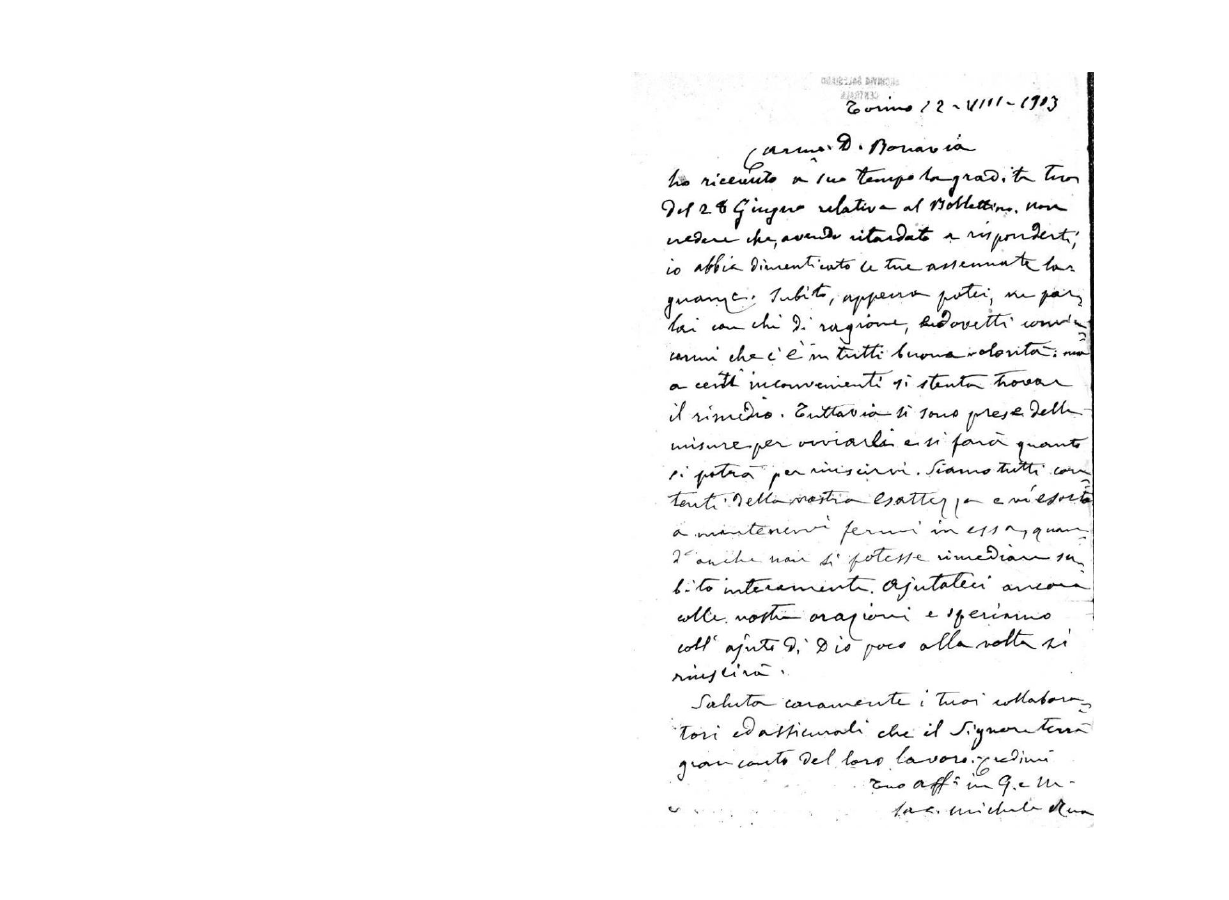 ARCHIVIO SALESIANO
CENTRALE
Torino 12-VIII-1903
Carmo. D. Bonavia
ho ricevuto a suo tempo la gradita tua
del 28 Giugno relativa al Bollettino. non
credere che, avendo ritardato a risponderti,
io abbia dimenticato le tue assennate la-
gnanze. Subito, appena potei, ne par-
lai con chi di ragione, e dovetti convin-
cermi che c'è in tutti buona volontà: ma
a certi inconvenienti si stenta trovar
il rimedio. Tuttavia si sono prese delle
misure per ovviarli e si farà quanto
si potrà per riuscirvi. Siamo tutti con-
tenti della vostra esattezza e vi esorto
a mantenervi fermi in essa, quan-
d'anche non si potesse rimediare su-
bito interamente. Ajutateci ancora
colle vostre orazioni e speriamo
coll' ajuto di Dio poco alla volta si
riuscirà.
Saluta caramente i tuoi collabora-
tori ed assicurali che il Signore terrà
gran conto del loro lavoro. Credimi
Tuo aff. in G. e M.
Sac. Michele Rua